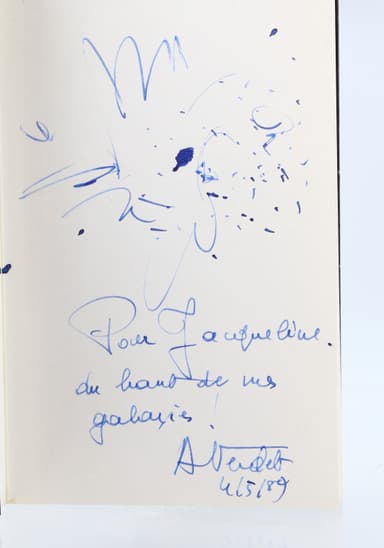 Pour Jacqueline.
du haut de mes
galaxies !
A Verdet
4/5/89